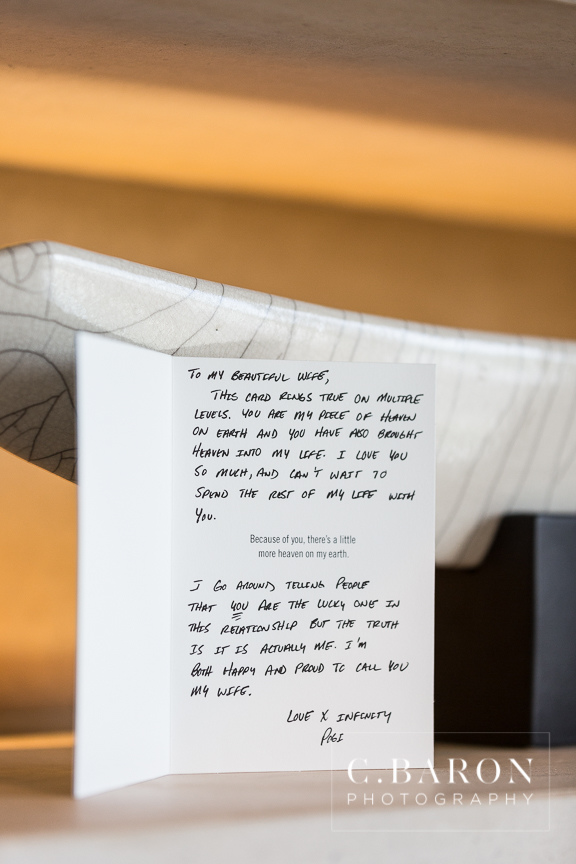 TO MY BEAUTIFUL WIFE,
THIS CARD RINGS TRUE ON MULTIPLE
LEVELS. YOU ARE MY PIECE OF HEAVEN
ON EARTH AND YOU HAVE ALSO BROUGHT
HEAVEN INTO MY LIFE. I LOVE YOU
SO MUCH, AND CAN'T WAIT TO
SPEND THE REST OF MY LIFE WITH
YOU.
Because of you, there's a little
more heaven on my earth.
I GO AROUND TELLING PEOPLE
THAT YOU ARE THE LUCKY ONE IN
THIS RELATIONSHIP BUT THE TRUTH
IS IT IS ACTUALLY ME. I'M
BOTH HAPPY AND PROUD TO CALL YOU
MY WIFE.
LOVE X INFINITY
PIGI
C. BARON
PHOTOGRAPHY